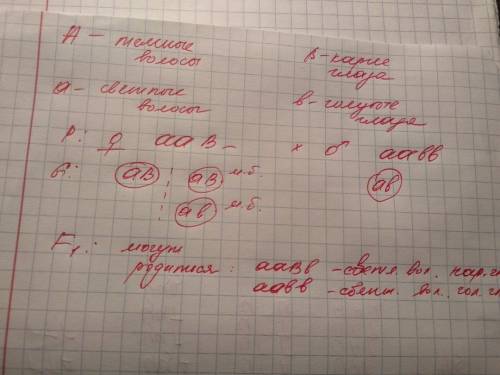 А – темные волосы
В – карие глаза
а – светлые волосы
в – голубые глаза
Р: ♀ ааВ_ × ♂ аавв
G: аВ аВ м.б. ав
ав м.б.
F₁: могут
родится: ааВв – светл. вол. кар. гл
аавв – светл. вол. гол. гл